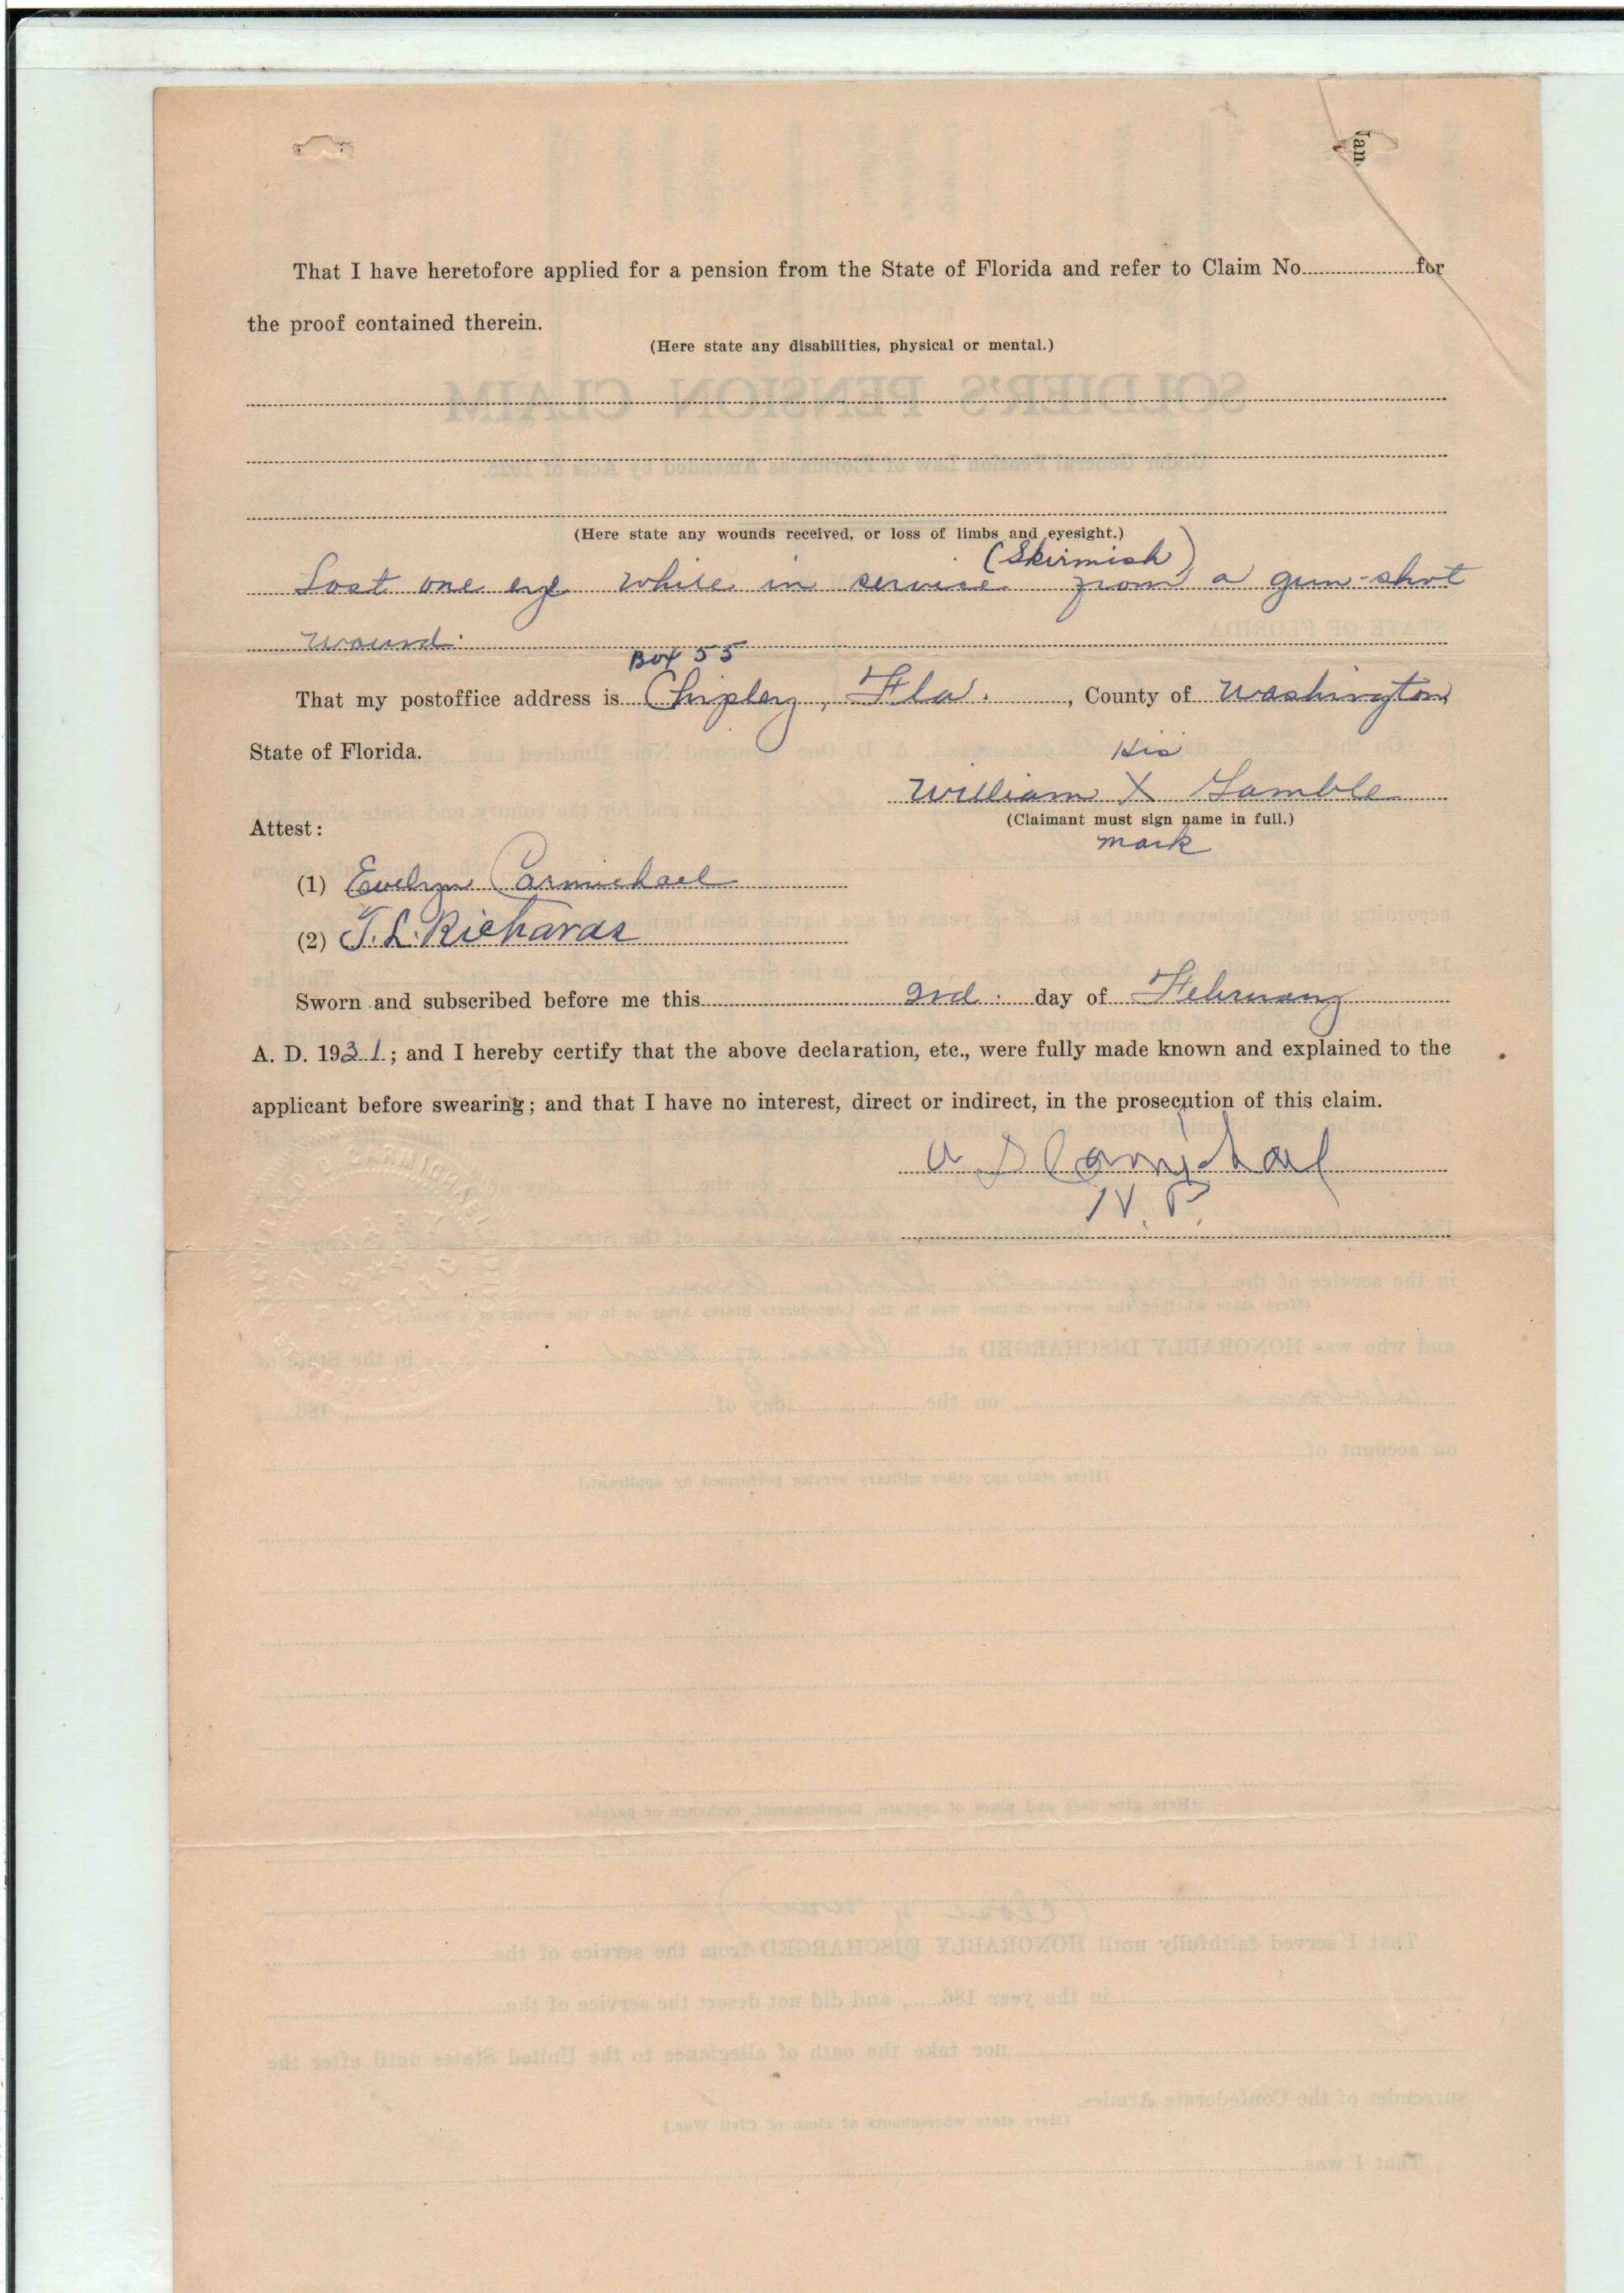 Jan.
That I have heretofore applied for a pension from the State of Florida and refer to Claim No. for
the proof contained therein.
(Here state any disabilities, physical or mental.)
(Here state any wounds received, or loss of limbs and eyesight.)
(Skirmish)
Lost one eye while in service from a gun-shot
wound.
Box 55
That my postoffice address is Chipley, Fla., County of Washington
State of Florida.
His
William X Gamble
(Claimant must sign name in full.)
mark
Attest:
(1) Evelyn Carmichael
(2) T. L. Richards
Sworn and subscribed before me this 3rd. day of February
A. D. 1931; and I hereby certify that the above declaration, etc., were fully made known and explained to the
applicant before swearing; and that I have no interest, direct or indirect, in the prosecution of this claim.
A D Carmichael
N. P.